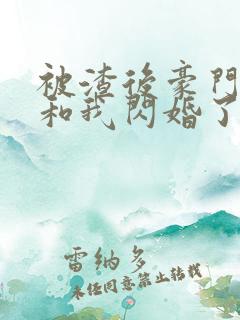 被渣后豪門
和我閃婚了
雷納多
未任同意禁止轉載